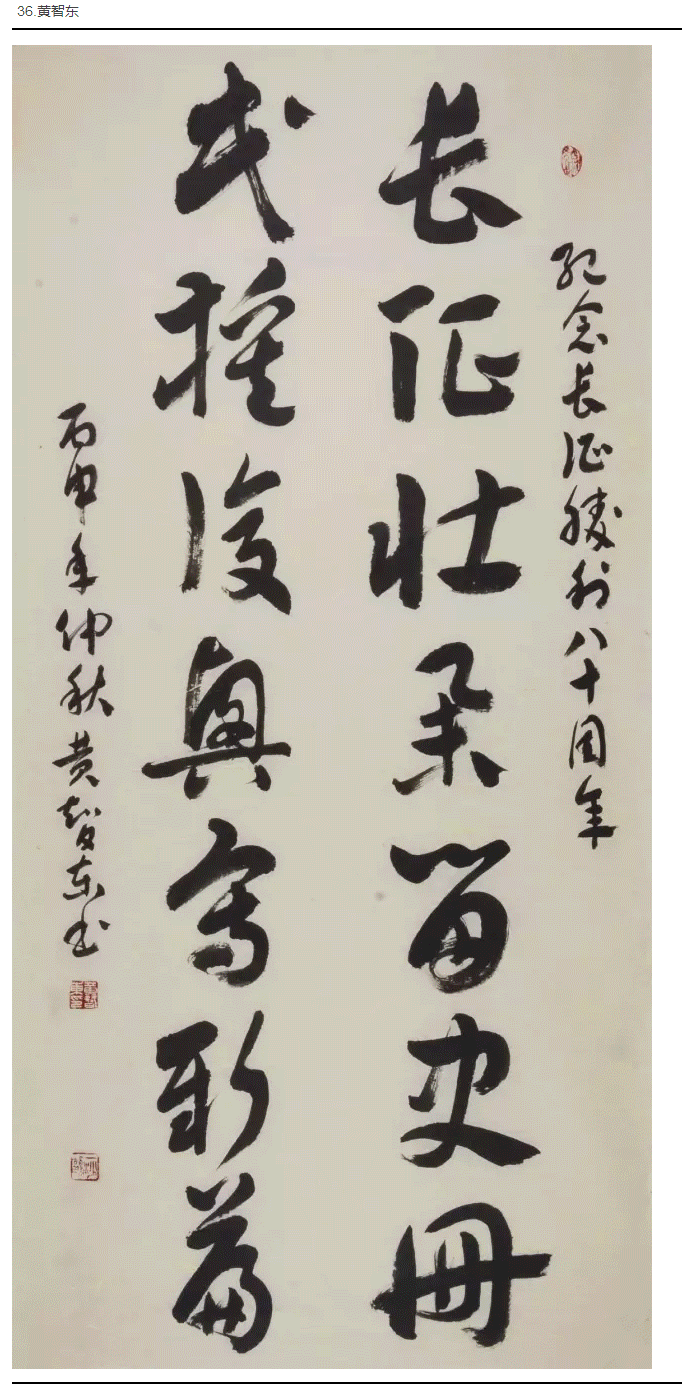 36.黄智东
纪念长征勝利八十周年
长征壮举留史册
民族復興写新篇
丙申年仲秋黄智东书